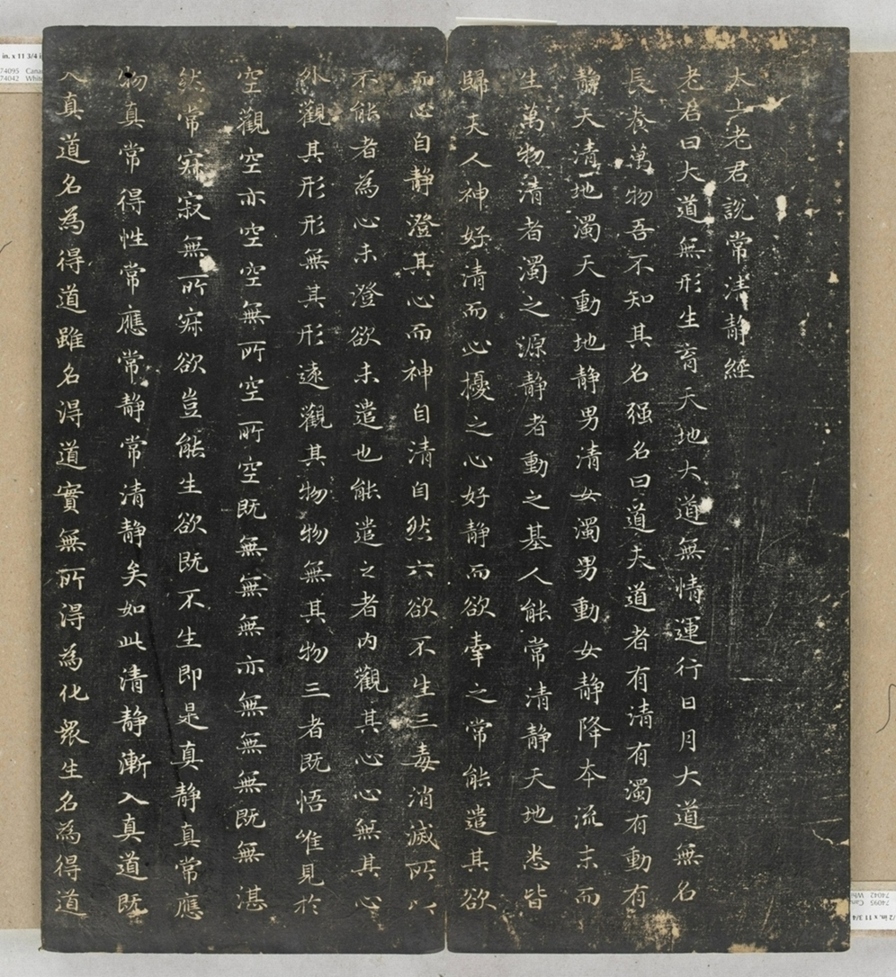 太上老君說常清靜經
老君曰大道無形生育天地大道無情運行日月大道無名
長養萬物吾不知其名强名曰道夫道者有清有濁有動有
靜天清地濁天動地靜男清女濁男動女靜降本流末而
生萬物清者濁之源靜者動之基人能常清靜天地悉皆
歸夫人神好清而心擾之心好靜而欲牽之常能遣其欲
而心自靜澄其心而神自清自然六欲不生三毒消滅所以
不能者為心未澄欲未遣也能遣之者內觀其心心無其心
外觀其形形無其形遠觀其物物無其物三者既悟唯見於
空觀空亦空空無所空所空既無無無亦無無無既無湛
然常寂寂無所寂欲豈能生欲既不生即是真靜真常應
物真常得性常應常靜常清靜矣如此清靜漸入真道既
入真道名為得道雖名得道實無所得為化眾生名為得道
in. x 11 3/4 i
74095 Cana
74042 White